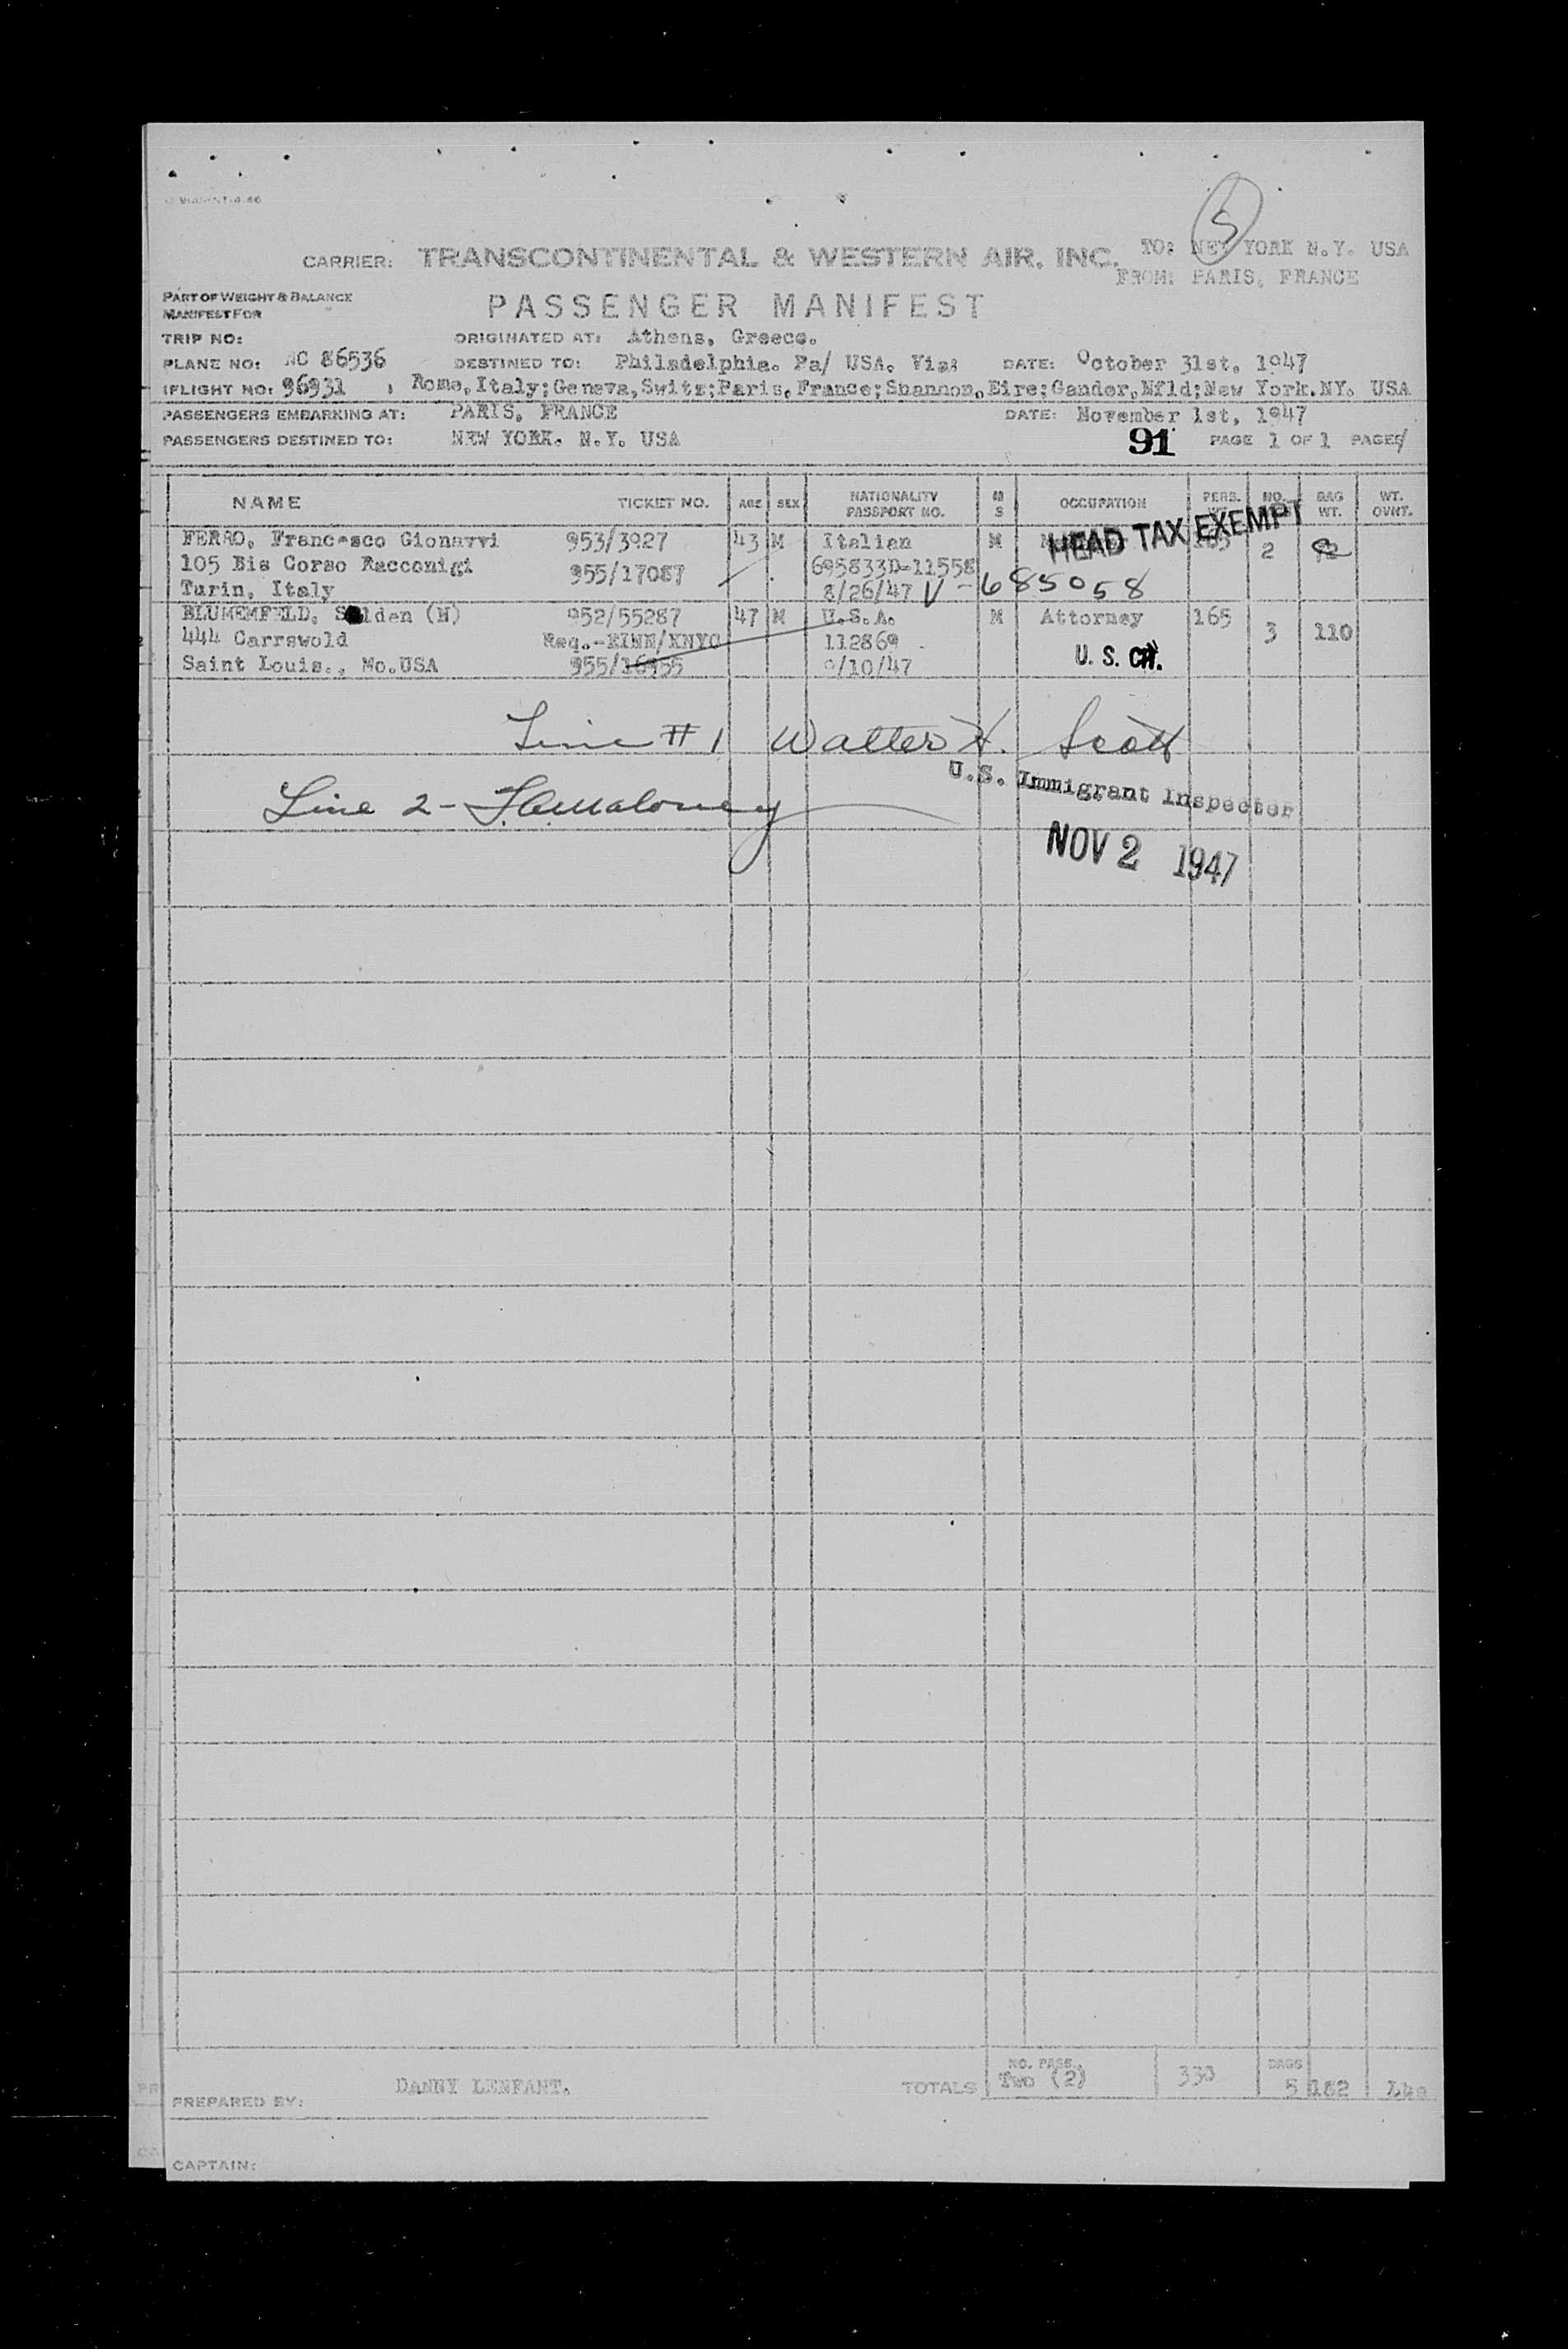 5
CARRIER: TRANSCONTINENTAL & WESTERN AIR, INC. TO: NEW YORK N.Y. USA
FROM: PARIS, FRANCE
PART OF WEIGHT & BALANCE
MANIFEST FOR
PASSENGER MANIFEST
TRIP NO: ORIGINATED AT: Athens, Greece.
PLANE NO: NC 86536 DESTINED TO: Philadelphia. Pa/ USA. Via: DATE: October 31st, 1947
FLIGHT NO: 96931 Rome, Italy;Geneva,Switz;Paris,France;Shannon,Eire;Gander,Nfld;New York.NY. USA
PASSENGERS EMBARKING AT: PARIS, FRANCE DATE: November 1st, 1947
PASSENGERS DESTINED TO: NEW YORK. N.Y. USA 91 PAGE 1 OF 1 PAGES
NAME TICKET NO. AGE SEX NATIONALITY PASSPORT NO. M S OCCUPATION PERS. NO. BAG WT. WT. OVNT.
HEAD TAX EXEMPT
FERRO, Francesco Gionavvi 953/3927 43 M Italian M 165 2
105 Bis Corso Racconigi 955/17087 695833D-11558
Turin, Italy 8/26/47 V-685058
BLUMEMFELD, Selden (N) 952/55287 47 M U.S.A. M Attorney 165 3 110
444 Carrswold Req.-EINN/KNYC 112869
Saint Louis., Mo.USA 955/16955 9/10/47 U. S. CIT.
Line #1 Walter H. Scott
U.S. Immigrant Inspector
Line 2 - Maloney
NOV 2 1947
PREPARED BY: DANNY LENFANT. TOTALS NO. PASS. Two (2) 330 BAGS 5 182 Lbs
CAPTAIN: